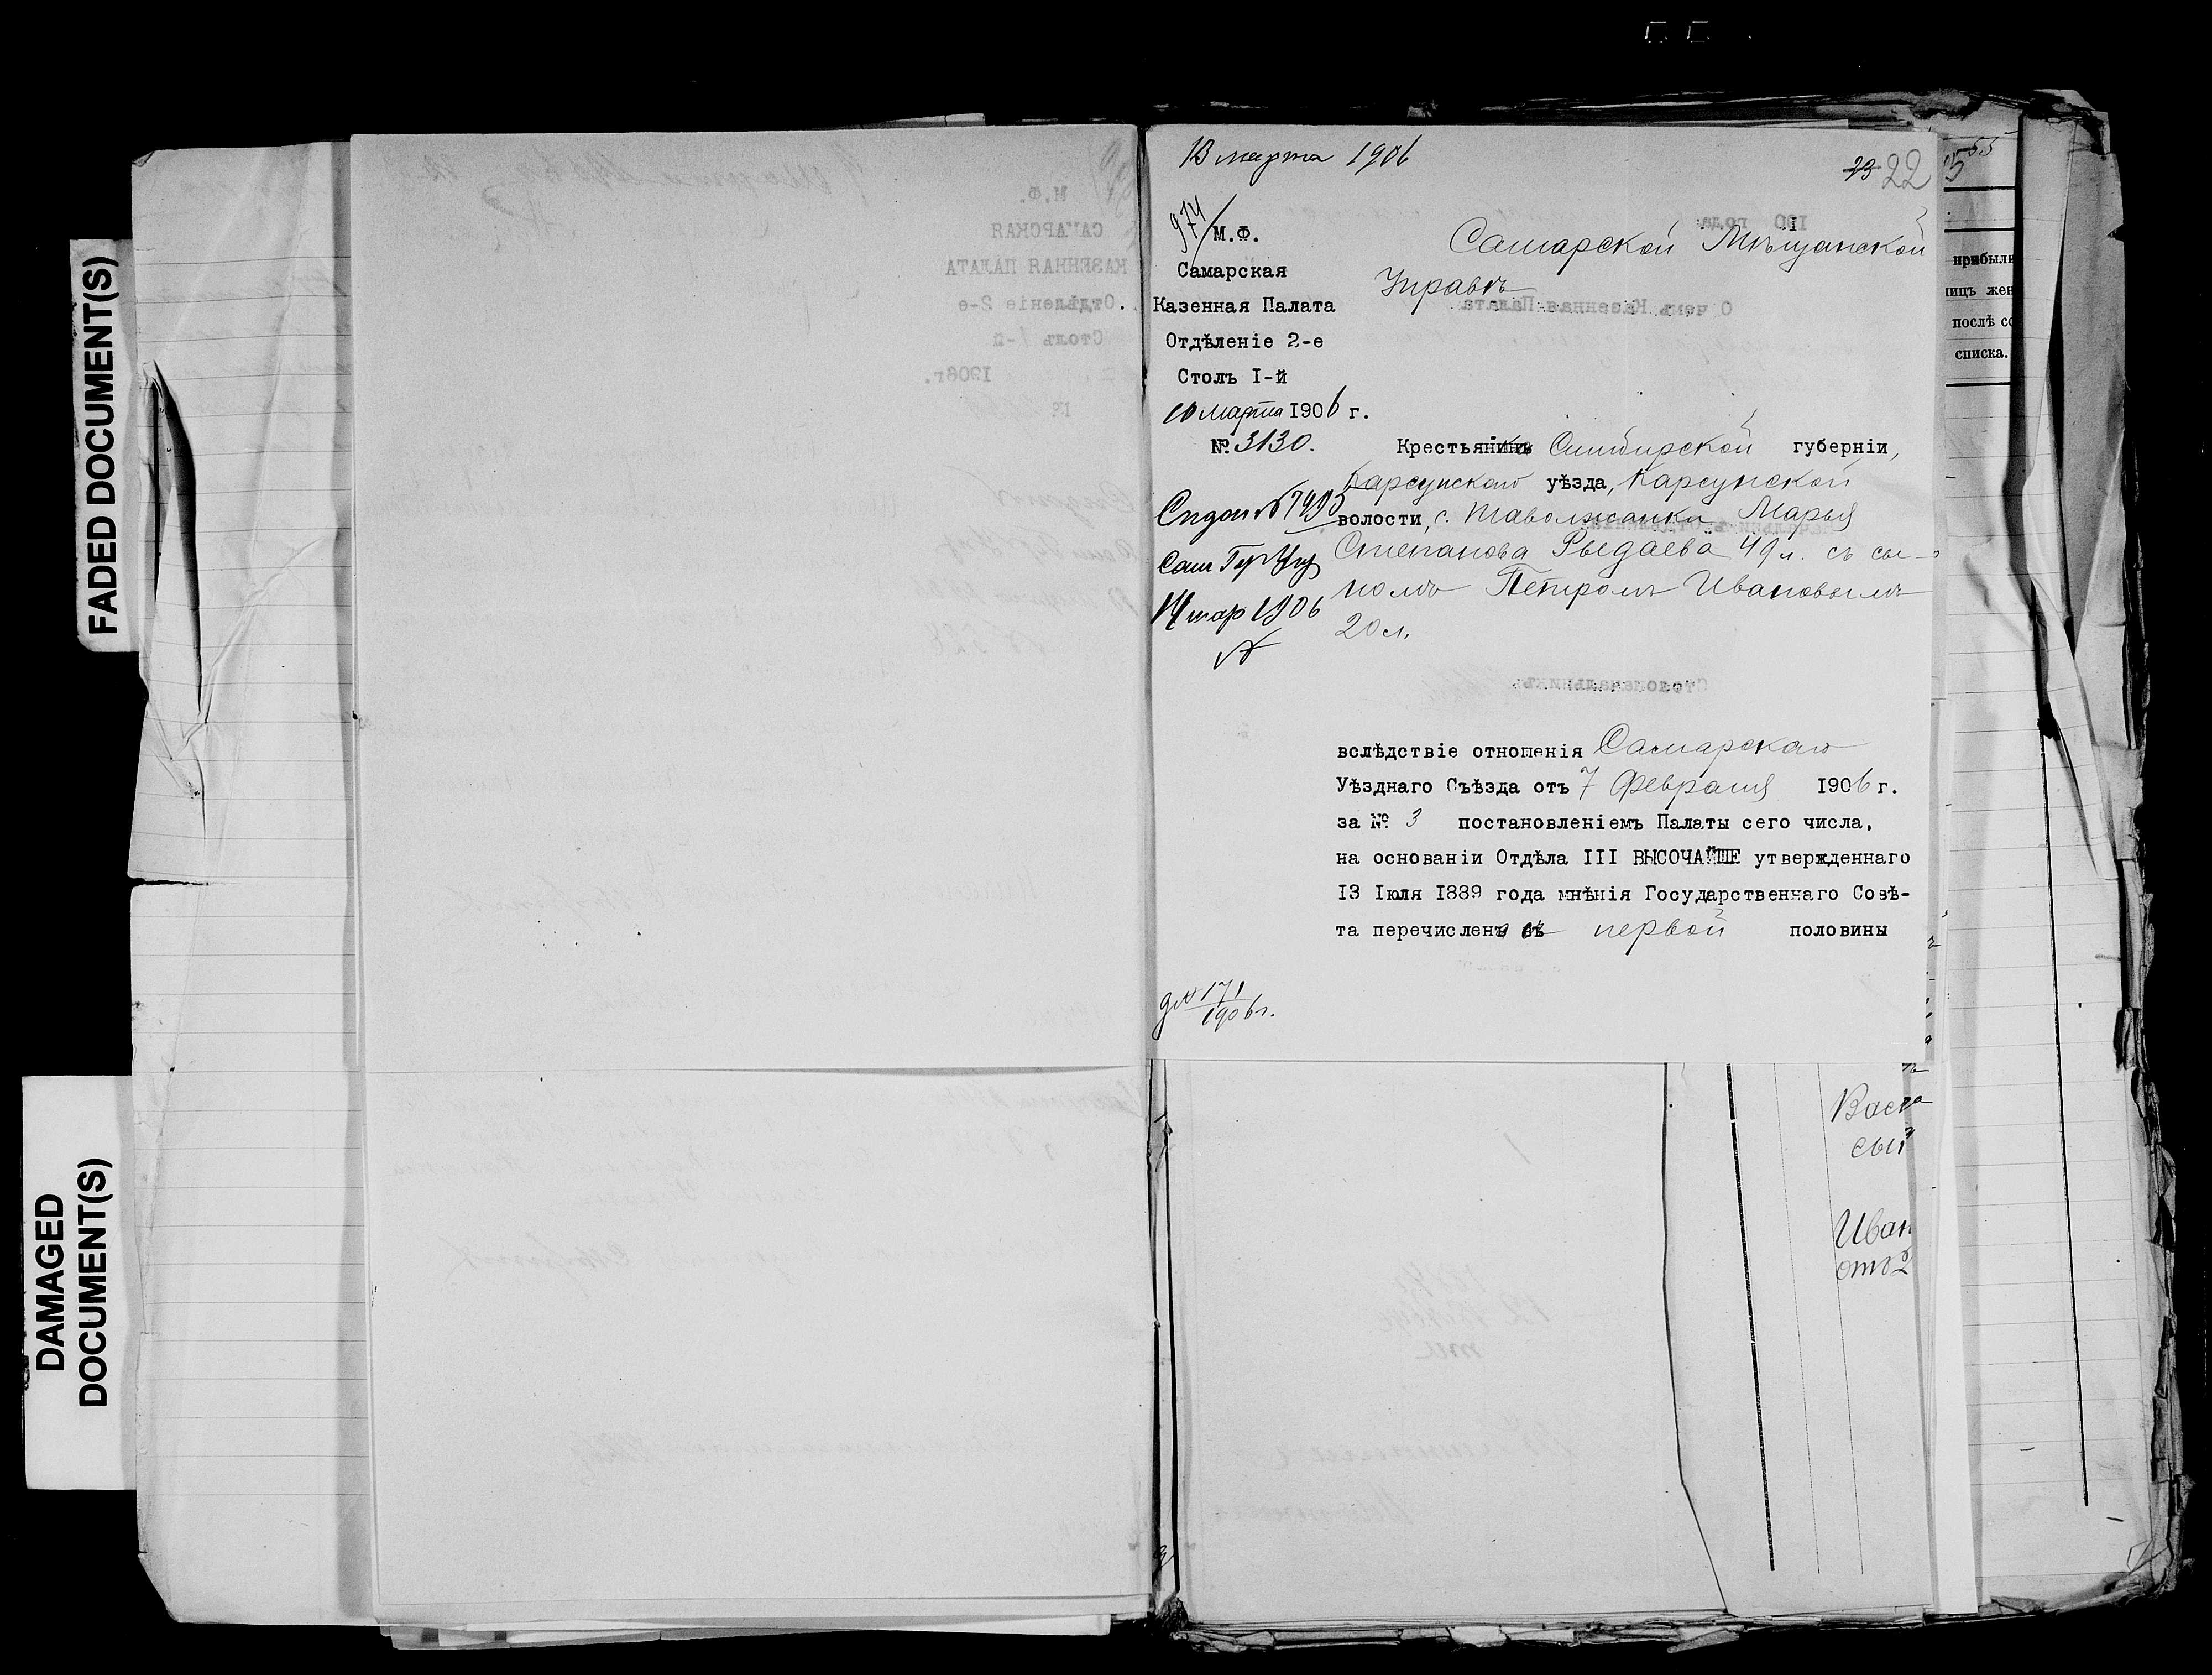 FADED DOCUMENT(S)
DAMAGED
DOCUMENT(S)
13 марта 1906
23 22
974
М.Ф.
Самарская
Казенная Палата
Отдѣленіе 2-е
Столъ I-й
10 марта 1906 г.
№ 3130.
Самарской Мѣщанской
Управѣ
Крестьянинъ Симбирской губерніи,
Карсунскаго уѣзда, Карсунской
волости, с. Таволжанки Марья
Степанова Рыдаева 49 л. съ сы-
номъ Петромъ Ивановымъ
20 л.
14 мар 1906
вслѣдствіе отношенія Самарскаго
Уѣзднаго Съѣзда отъ 7 Февраля 1906 г.
за № 3 постановленіемъ Палаты сего числа,
на основаніи Отдѣла III ВЫСОЧАЙШЕ утвержденнаго
13 Іюля 1889 года мнѣнія Государственнаго Совѣ-
та перечислена съ первой половины
д № 171
1906 г.
прибыли
ицъ жен
послѣ со
списка.
Васи
сын
Иван